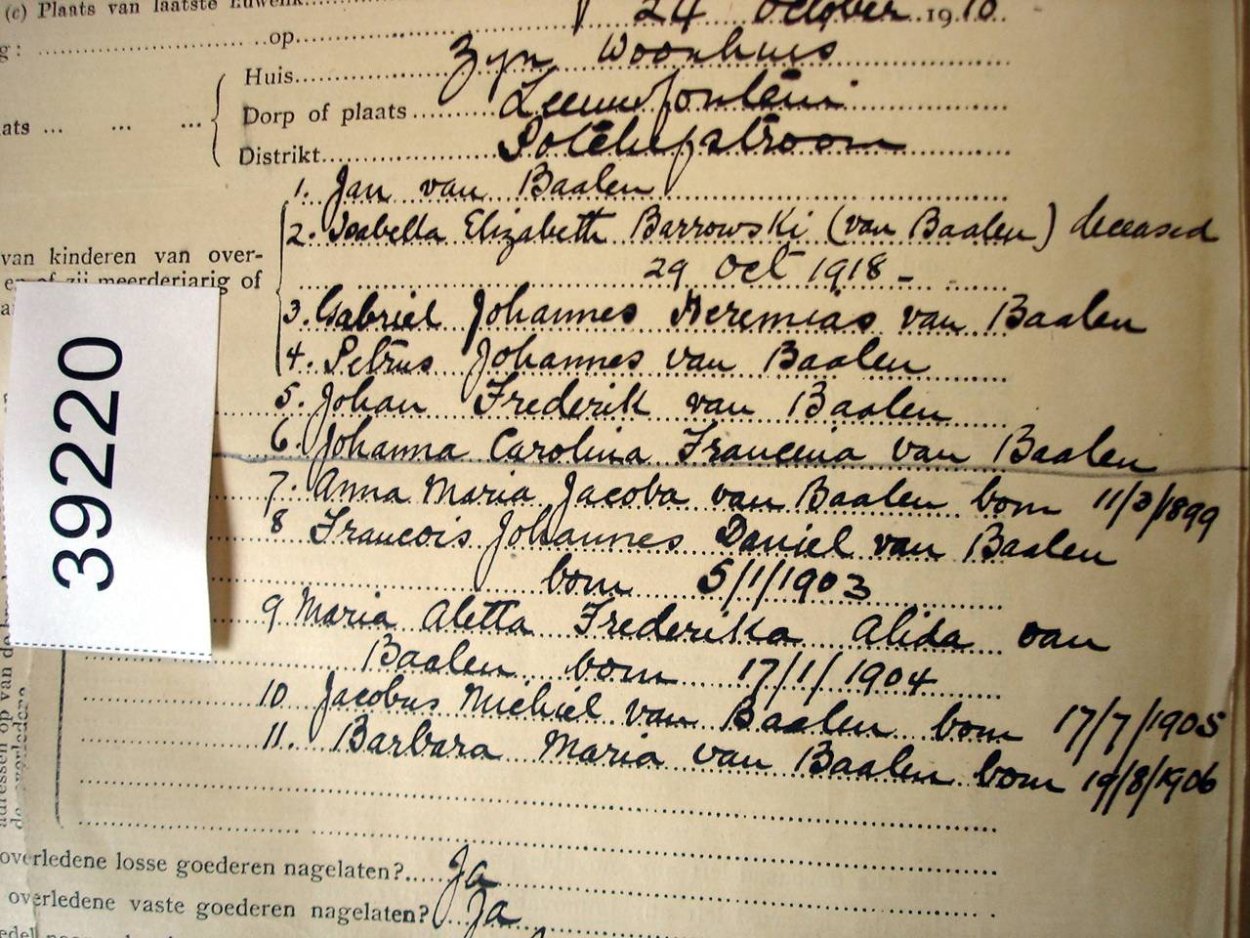 (c) Plaats van laatste Huwelik
24 October 1918
g: op
Huis Zyn Woonhuis
ats ... ... ... Dorp of plaats Leeuwfontein
Distrikt Potchefstroom
1. Jan van Baalen
2. Isabella Elizabeth Barrowski (van Baalen) deceased
29 Oct 1918 -
van kinderen van over-
en of zij meerderjarig of
3. Gabriel Johannes Heremias van Baalen
4. Petrus Johannes van Baalen
5. Johan Frederik van Baalen
6. Johanna Carolina Francina van Baalen
7. Anna Maria Jacoba van Baalen born 11/3/1899
8 Francois Johannes Daniel van Baalen
born 5/1/1903
9 Maria Aletta Frederika Alida van
Baalen born 17/1/1904
10 Jacobus Michiel van Baalen born 17/7/1905
11. Barbara Maria van Baalen born 19/8/1906
39220
adressen op van de
de overledene
overledene losse goederen nagelaten? Ja
overledene vaste goederen nagelaten? Ja